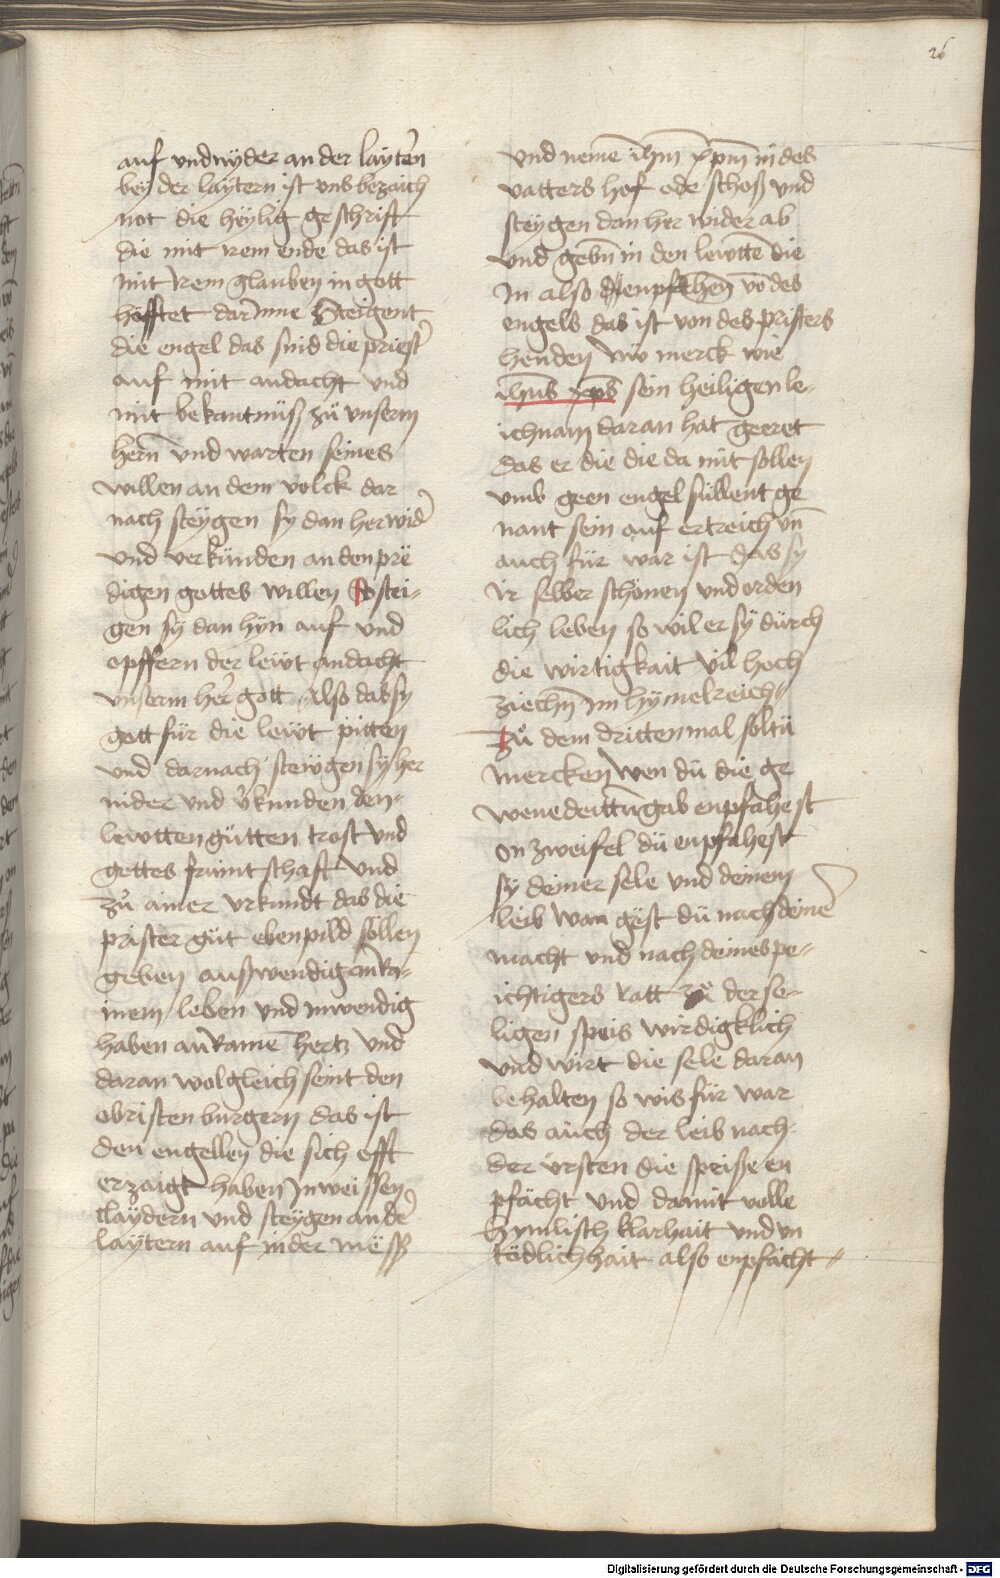 26
auf und nyder an der laytern
bey der laytern ist uns bezaich
not die heylig geschrift
die mit irem ende das ist
mit irem glauben in gott
hafftet dar Inne Steigent
die engel das sind die priest̛
auf mit andacht und
mit bekantnüß zü unserm
hern̄ und warten seines
willen an dem volck dar
nach steygen sy dan her wid̛
und verkünden an den pre
digen gottes willen So stei-
gen sy dan hyn auf und
opffern der lewt andacht
unserm her̛ gott Also das sy
gott für die lewt pitten
und darnach steygen sy her
nider und v̛kunden den-
lewtten gütten trost und
gottes frunt schaft und
zů ainer urkundt das die
prister güt ebenpild söllen
geben außwendig an ra-
inem leben und inwendig
haben ain̄ rainē hertz und
daran wol gleich seint den
obristen burgern das ist
den engellen die sich offt
erzaigt haben In weissen
claydern und steygen an de̛
laytern auf in der mëss
und nemē ihm̄ xp̄m in des
vatters hof ode schoß und
steygen dan her wider ab
und gebn̄ in den lewttē die
In also enpfahen vō des
engels das ist von des pristers
henden Nw merck wie
ihūs xp̄s sein heiligen le-
ichnam daran hat geeret
das er die die da mit sollen
umb geen engel süllent ge
nant sein auf ertreich un̄
auch für war ist das sy
ir selber schonen und orden
lich leben so wil er sy dürch
die wirtigkait vil hoch
ziechn̄ im hymelreich
Zů dem dritten mal soltü
mercken wen dü die ge
wenedeitten̄ gab enpfähest
on zweifel dü enpfahest
sy deiner sele und deinem
leib wan gëst dü nach deine̛
macht und nach deines pe-
ichtigers ratt zů der se-
ligen speis wirdigklich
und wirt die sele daran
behalten so wis für war
das auch der leib nach-
der ursten die speiße en
pfächt und damit volle
hymlisch klarhait und un
tödlichhait also enpfächt
Digitalisierung gefördert durch die Deutsche Forschungsgemeinschaft - DFG